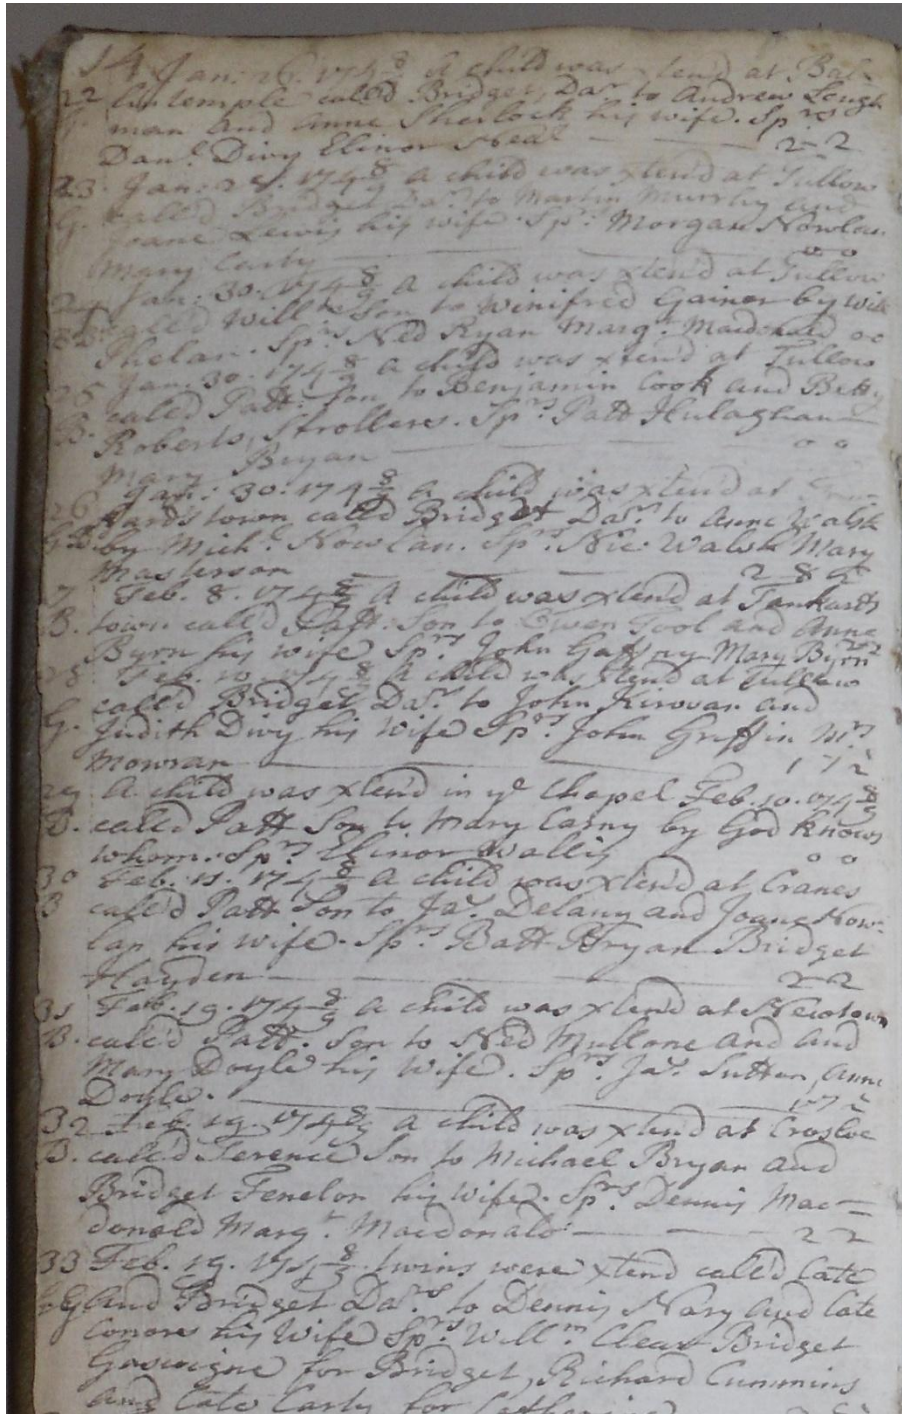 14 Jan: 26. 174 8/9 A child was xtend at Bal-
22 lintemple called Bridget, Dar. to Andrew Lough
G. man and Anne Sherlock his wife. Sprs
Danl. Divy Elinor Neal — 2-2
23. Jan: 28. 174 8/9 a child was xtend at Tullow
G. called Bridget Dar. to Martin Murphy and
Joane Lewis his wife. Sprs: Morgan Nowlan
Mary Carty — 0 0
24 Jan: 30. 174 8/9 A child was xtend at Tullow
called Willm Son to Winifred Gainor by Will
Phelan. Sprs Ned Ryan Margt. Macdonald 00
25 Jan. 30. 174 8/9 a child was xtend at Tullow
B. called Patt: Son to Benjamin Cook and Betty
Roberts, Strollers. Sprs. Patt Hulaghan
Mary Bryan — 0 0
26 Jan: 30. 174 8/9 a child was xtend at
yardstown called Bridget Dar. to Anne Walsh
by Michl. Nowlan. Sprs. Nic: Walsh Mary
Masterson — 2 8
7 Feb. 8. 174 8/9 A child was xtend at Tankards
B. town called Patt: Son to Owen Tool and Anne
Byrn his wife Sprs. John Gafny Mary Byrn
28 Feb. 10. 174 8/9 A child was xtend at Tullow
G. called Bridget Dar. to John Kirovan and
Judith Divy his wife Sprs. John Griffin Mry
Mowran — 1 7
29 A child was xtend in ye Chapel Feb. 10. 174 8/9
B. called Patt Son to Mary Carny by God knows
whom. Sprs Elinor Wallis 0 0
30 Feb. 11. 174 8/9 a child was xtend at Cranes
B called Patt Son to Jas. Delany and Joane Now-
lan his wife. Sprs Batt Bryan Bridget
Hayden — 2-2
31 Feb. 19. 174 8/9 a child was xtend at Newtown
B. called Patt. Son to Ned Mullone and and
Mary Doyle his wife. Sprs. Jas. Sutton, Anne
Doyle. — 1 7
32 Feb. 19. 174 8/9 a child was xtend at Crosloe
B. called Terence Son to Michael Bryan and
Bridget Fenelon his wife. Sprs Dennis Mac-
donald Margt. Macdonald — 2 2
33 Feb. 19. 174 8/9 twins were xtend called Cate
and Bridget Dars to Dennis Nary and Cate
Conors his Wife Sprs Willm. Clear Bridget
Gascoigne for Bridget, Richard Cummins
and Cate Carty for Catharine